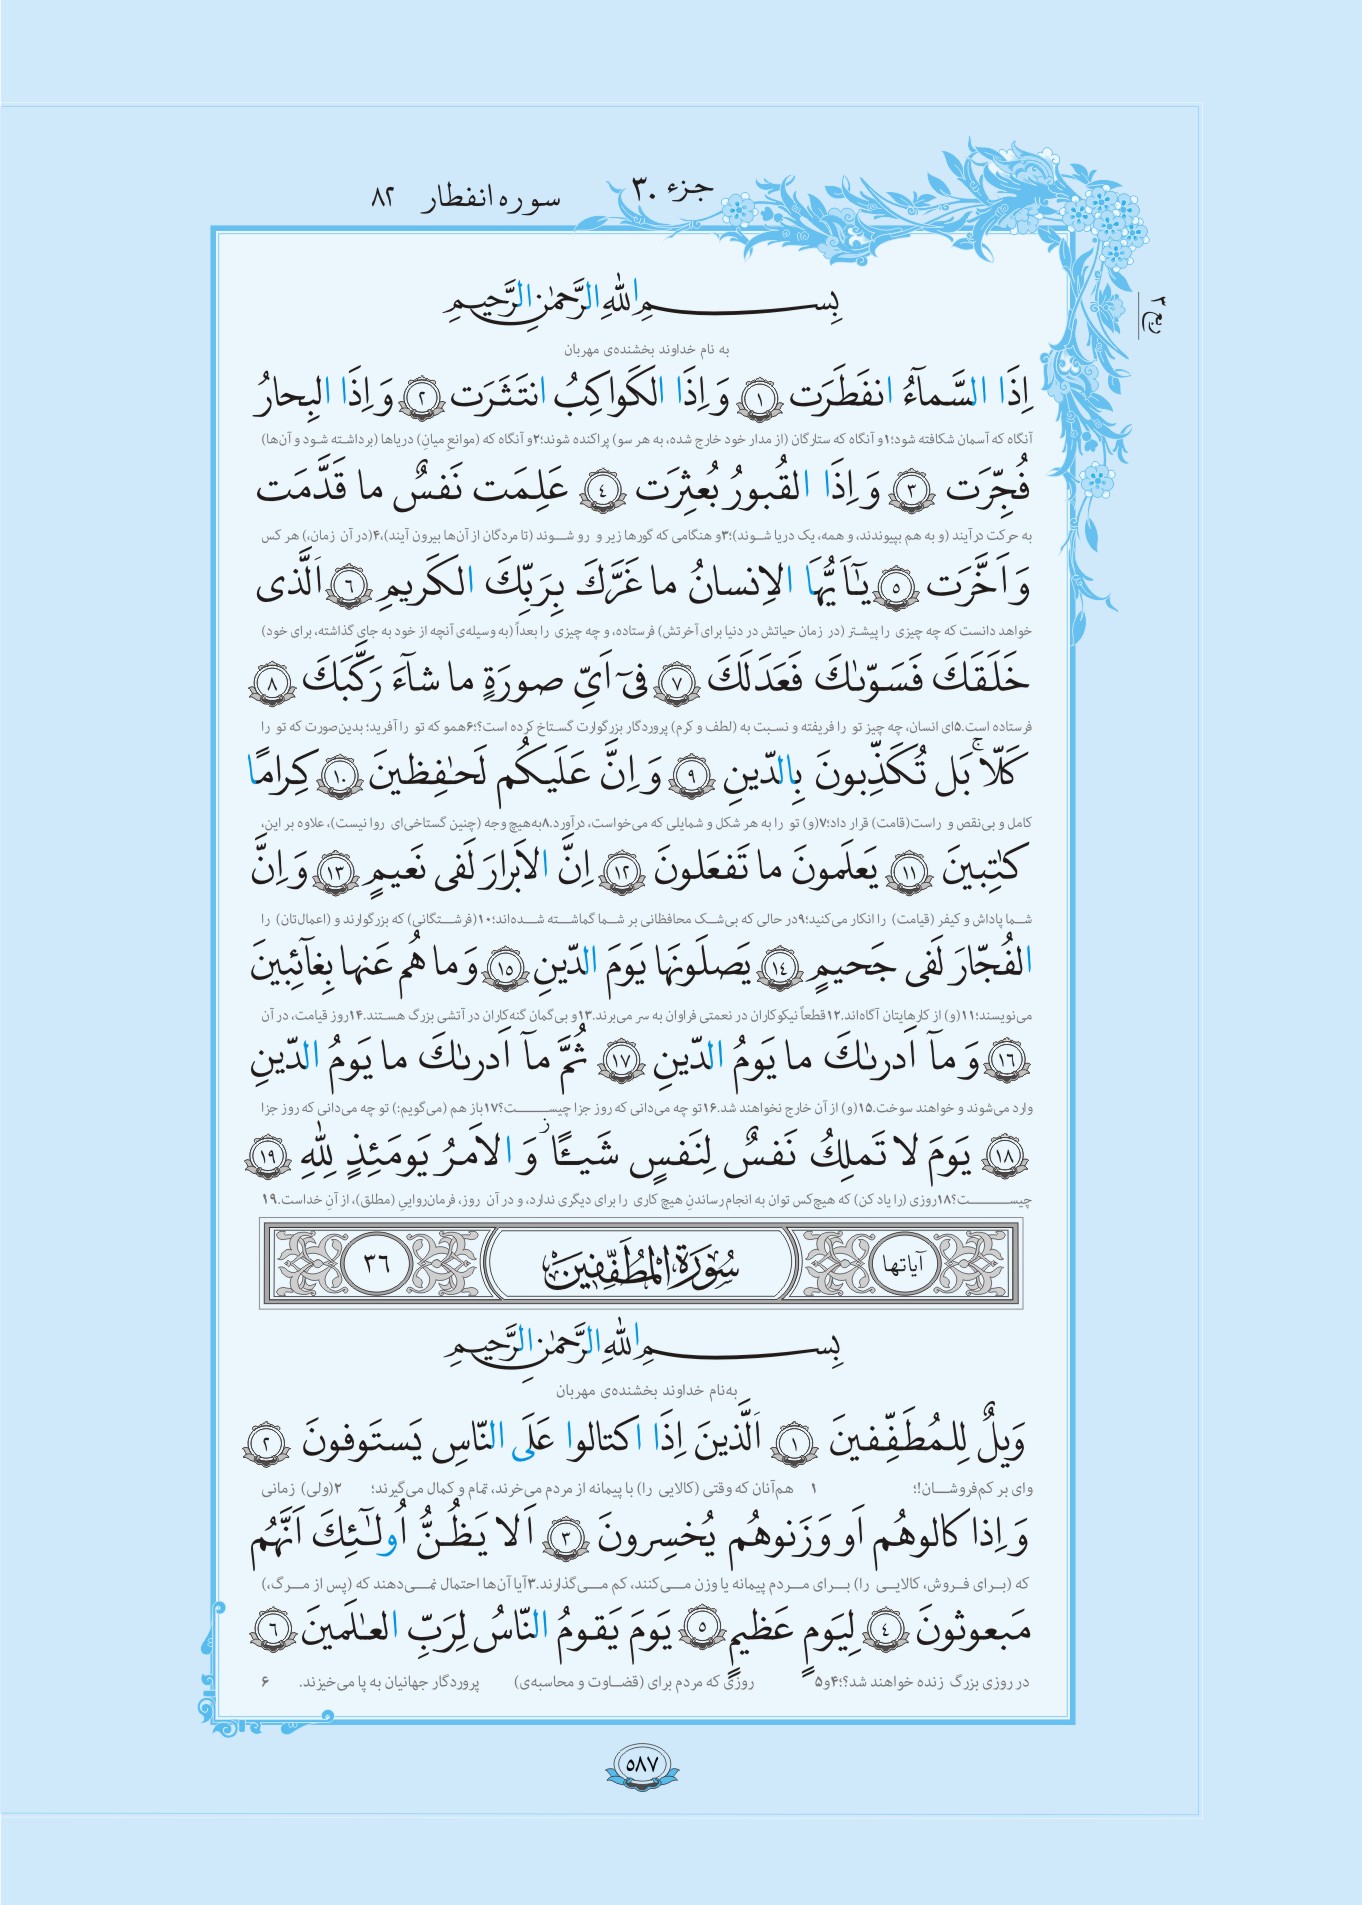 جزء ۳۰
سوره انفطار ۸۲
ربع ۳
بِسمِ اللّٰهِ الرَّحمٰنِ الرَّحیمِ
به نام خداوند بخشنده‌ی مهربان
اِذَا السَّماۤءُ انفَطَرَت ﴿١﴾ وَ اِذَا الکَواکِبُ انتَثَرَت ﴿٢﴾ وَ اِذَا البِحارُ
آنگاه که آسمان شکافته شود؛۱و آنگاه که ستارگان (از مدار خود خارج شده، به هر سو) پراکنده شوند؛۲و آنگاه که (موانع میانِ) دریاها (برداشته شود و آن‌ها)
فُجِّرَت ﴿٣﴾ وَ اِذَا القُبورُ بُعثِرَت ﴿٤﴾ عَلِمَت نَفسٌ ما قَدَّمَت
به حرکت درآیند (و به هم بپیوندند، و همه، یک دریا شوند)؛۳و هنگامی که گورها زیر و رو شوند (تا مردگان از آن‌ها بیرون آیند)،۴(در آن زمان،) هر کس
وَ اَخَّرَت ﴿٥﴾ یٰۤاَیُّهَا الاِنسانُ ما غَرَّكَ بِرَبِّكَ الکَریمِ ﴿٦﴾ اَلَّذی
خواهد دانست که چه چیزی را پیشتر (در زمان حیاتش در دنیا برای آخرتش) فرستاده، و چه چیزی را بعداً (به وسیله‌ی آنچه از خود به جای گذاشته، برای خود)
خَلَقَكَ فَسَوّىٰكَ فَعَدَلَكَ ﴿٧﴾ فیۤ اَیِّ صورَةٍ ما شاۤءَ رَکَّبَكَ ﴿٨﴾
فرستاده است.۵ای انسان، چه چیز تو را فریفته و نسبت به (لطف و کرم) پروردگار بزرگوارت گستاخ کرده است؟؛۶همو که تو را آفرید؛ بدین‌صورت که تو را
کَلّا ۚ بَل تُکَذِّبونَ بِالدّینِ ﴿٩﴾ وَ اِنَّ عَلَیکُم لَحٰفِظینَ ﴿١٠﴾ کِرامًا
کامل و بی‌نقص و راست(قامت) قرار داد؛۷(و) تو را به هر شکل و شمایلی که می‌خواست، درآورد.۸به‌هیچ وجه (چنین گستاخی‌ای روا نیست)، علاوه بر این،
کٰتِبینَ ﴿١١﴾ یَعلَمونَ ما تَفعَلونَ ﴿١٢﴾ اِنَّ الاَبرارَ لَفی نَعیمٍ ﴿١٣﴾ وَ اِنَّ
شما پاداش و کیفر (قیامت) را انکار می‌کنید؛۹در حالی که بی‌شک محافظانی بر شما گماشته شده‌اند؛۱۰(فرشتگانی) که بزرگوارند و (اعمال‌تان) را
الفُجّارَ لَفی جَحیمٍ ﴿١٤﴾ یَصلَونَها یَومَ الدّینِ ﴿١٥﴾ وَ ما هُم عَنها بِغاۤئِبینَ
می‌نویسند؛۱۱(و) از کارهایتان آگاه‌اند.۱۲قطعاً نیکوکاران در نعمتی فراوان به سر می‌برند.۱۳و بی‌گمان گنه‌کاران در آتشی بزرگ هستند.۱۴روز قیامت، در آن
﴿١٦﴾ وَ ماۤ اَدرىٰكَ ما یَومُ الدّینِ ﴿١٧﴾ ثُمَّ ماۤ اَدرىٰكَ ما یَومُ الدّینِ
وارد می‌شوند و خواهند سوخت.۱۵(و) از آن خارج نخواهند شد.۱۶تو چه می‌دانی که روز جزا چیست؟۱۷باز هم (می‌گویم:) تو چه می‌دانی که روز جزا
﴿١٨﴾ یَومَ لا تَملِكُ نَفسٌ لِنَفسٍ شَیـًٔا ز وَ الاَمرُ یَومَئِذٍ لِلّٰهِ ﴿١٩﴾
چیست؟۱۸روزی (را یاد کن) که هیچ‌کس توان به انجام رساندنِ هیچ کاری را برای دیگری ندارد، و در آن روز، فرمان‌رواییِ (مطلق)، از آنِ خداست.۱۹
آیاتها سُورَةُ المُطَفِّفِینَ ٣٦
بِسمِ اللّٰهِ الرَّحمٰنِ الرَّحیمِ
به‌نام خداوند بخشنده‌ی مهربان
وَیلٌ لِلمُطَفِّفینَ ﴿١﴾ اَلَّذینَ اِذَا اکتالوا عَلَی النّاسِ یَستَوفونَ ﴿٢﴾
وای بر کم‌فروشان!؛ ۱ هم‌آنان که وقتی (کالایی را) با پیمانه از مردم می‌خرند، تمام و کمال می‌گیرند؛ ۲(ولی) زمانی
وَ اِذا کالوهُم اَو وَزَنوهُم یُخسِرونَ ﴿٣﴾ اَلا یَظُنُّ اُولٰۤئِكَ اَنَّهُم
که (برای فروش، کالایی را) برای مردم پیمانه یا وزن می‌کنند، کم می‌گذارند.۳آیا آن‌ها احتمال نمی‌دهند که (پس از مرگ،)
مَبعوثونَ ﴿٤﴾ لِیَومٍ عَظیمٍ ﴿٥﴾ یَومَ یَقومُ النّاسُ لِرَبِّ العٰلَمینَ ﴿٦﴾
در روزی بزرگ زنده خواهند شد؟؛۴و۵ روزی که مردم برای (قضاوت و محاسبه‌ی) پروردگار جهانیان به پا می‌خیزند. ۶
٥٨٧